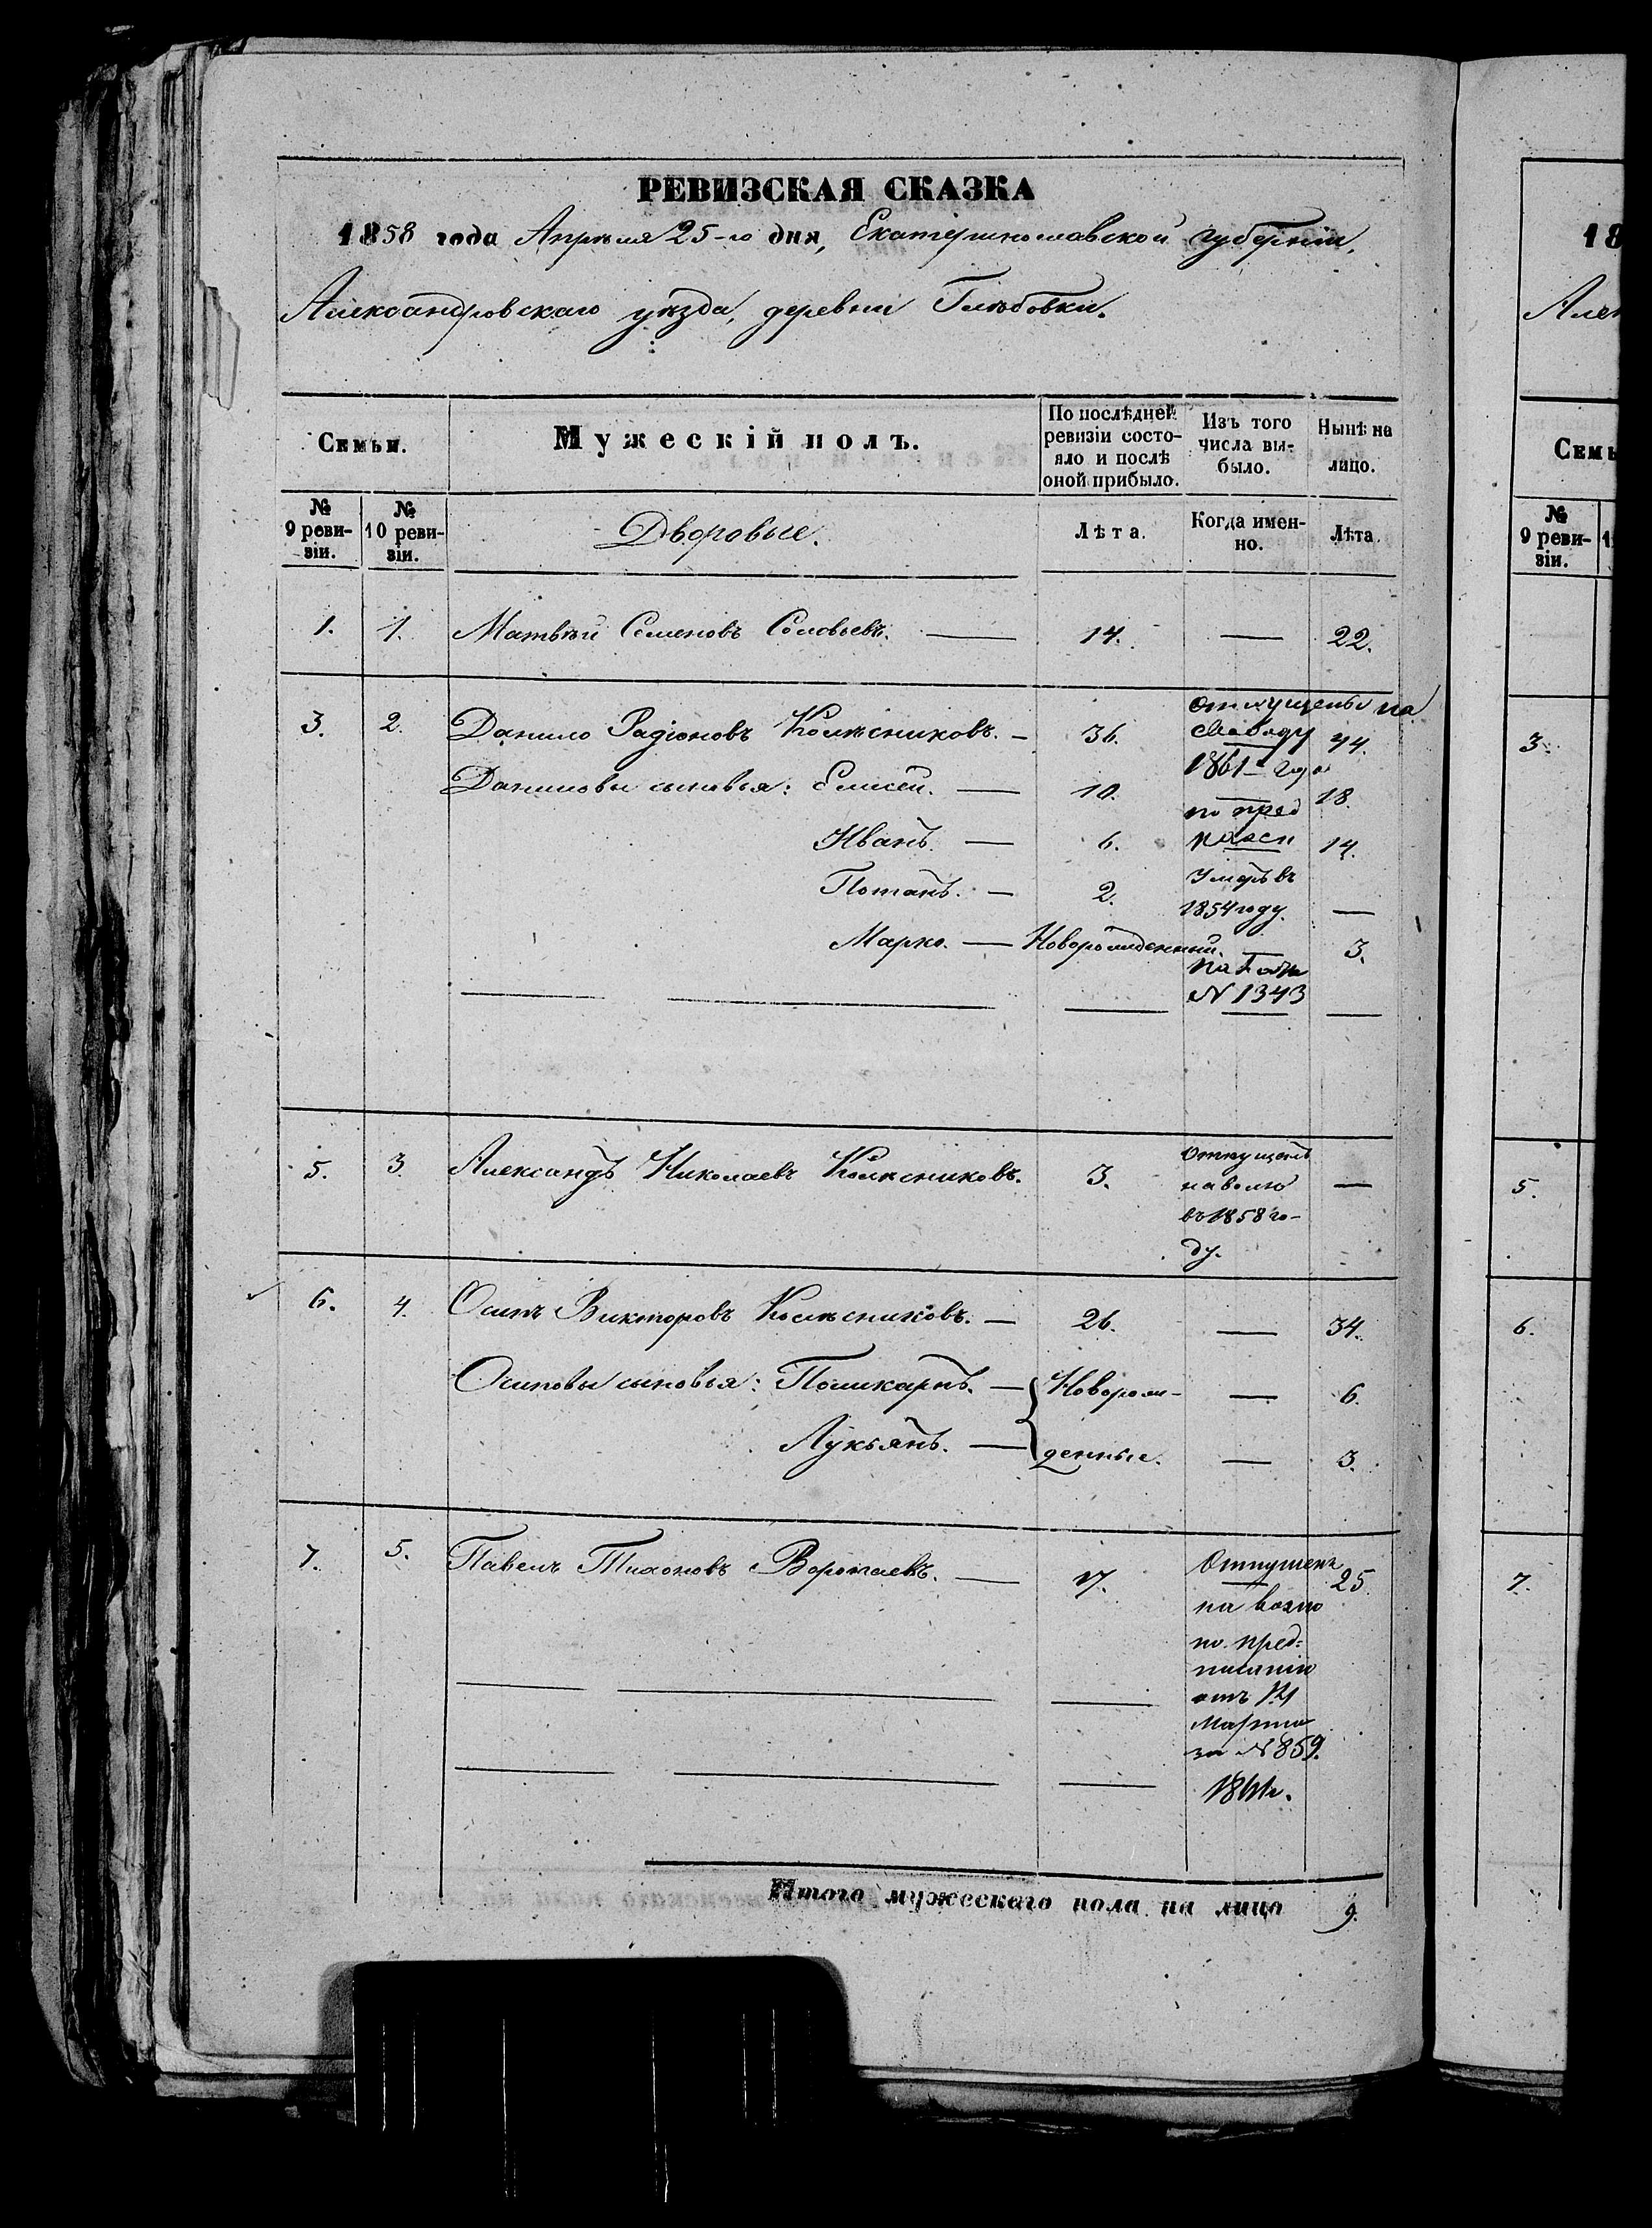 РЕВИЗСКАЯ СКАЗКА
1858 года Апрѣля 25-го дня, Екатеринославской губерніи,
Александровскаго уѣзда, деревни Глѣбовки.
Семьи.
Мужескій полъ.
По послѣдней ревизіи состо-
яло и послѣ
оной прибыло.
Изъ того
числа вы-
было.
Нынѣ на
лицо.
№
9 реви-
зіи.
№
10 реви-
зіи.
Дворовые.
Лѣта.
Когда имен-
но.
Лѣта.
1. 1. Матвѣй Семеновъ Соловьевъ. — 14. — 22.
3. 2. Данило Радіоновъ Колѣсниковъ. — 36. отпущены на свободу 44.
1861 года
Даниловы сыновья: Елисей. — 10. по пред 18.
Иванъ. — 6. 14.
Потапъ. — 2. Умеръ въ
1854 году. —
Марко. — Новорожденный. — 3.
N 1343
5. 3. Александръ Николаевъ Колѣсниковъ. 3. Отпущенъ
на волю —
въ 1858 го-
ду.
6. 4. Осипъ Викторовъ Колѣсниковъ. — 26. — 34.
Осиповы сыновья: Поликарпъ. — Новорож- — 6.
Лукьянъ. — денные. — 3.
7. 5. Павелъ Тихоновъ Воропаевъ. — 17. Отпущенъ 25.
на волю
по пред=
писанію
отъ
Марта
за N 859.
1861г.
Итого мужескаго пола на лицо 9.
18
Але
Семь
№
9 реви-
зіи.
3.
5.
6.
7.